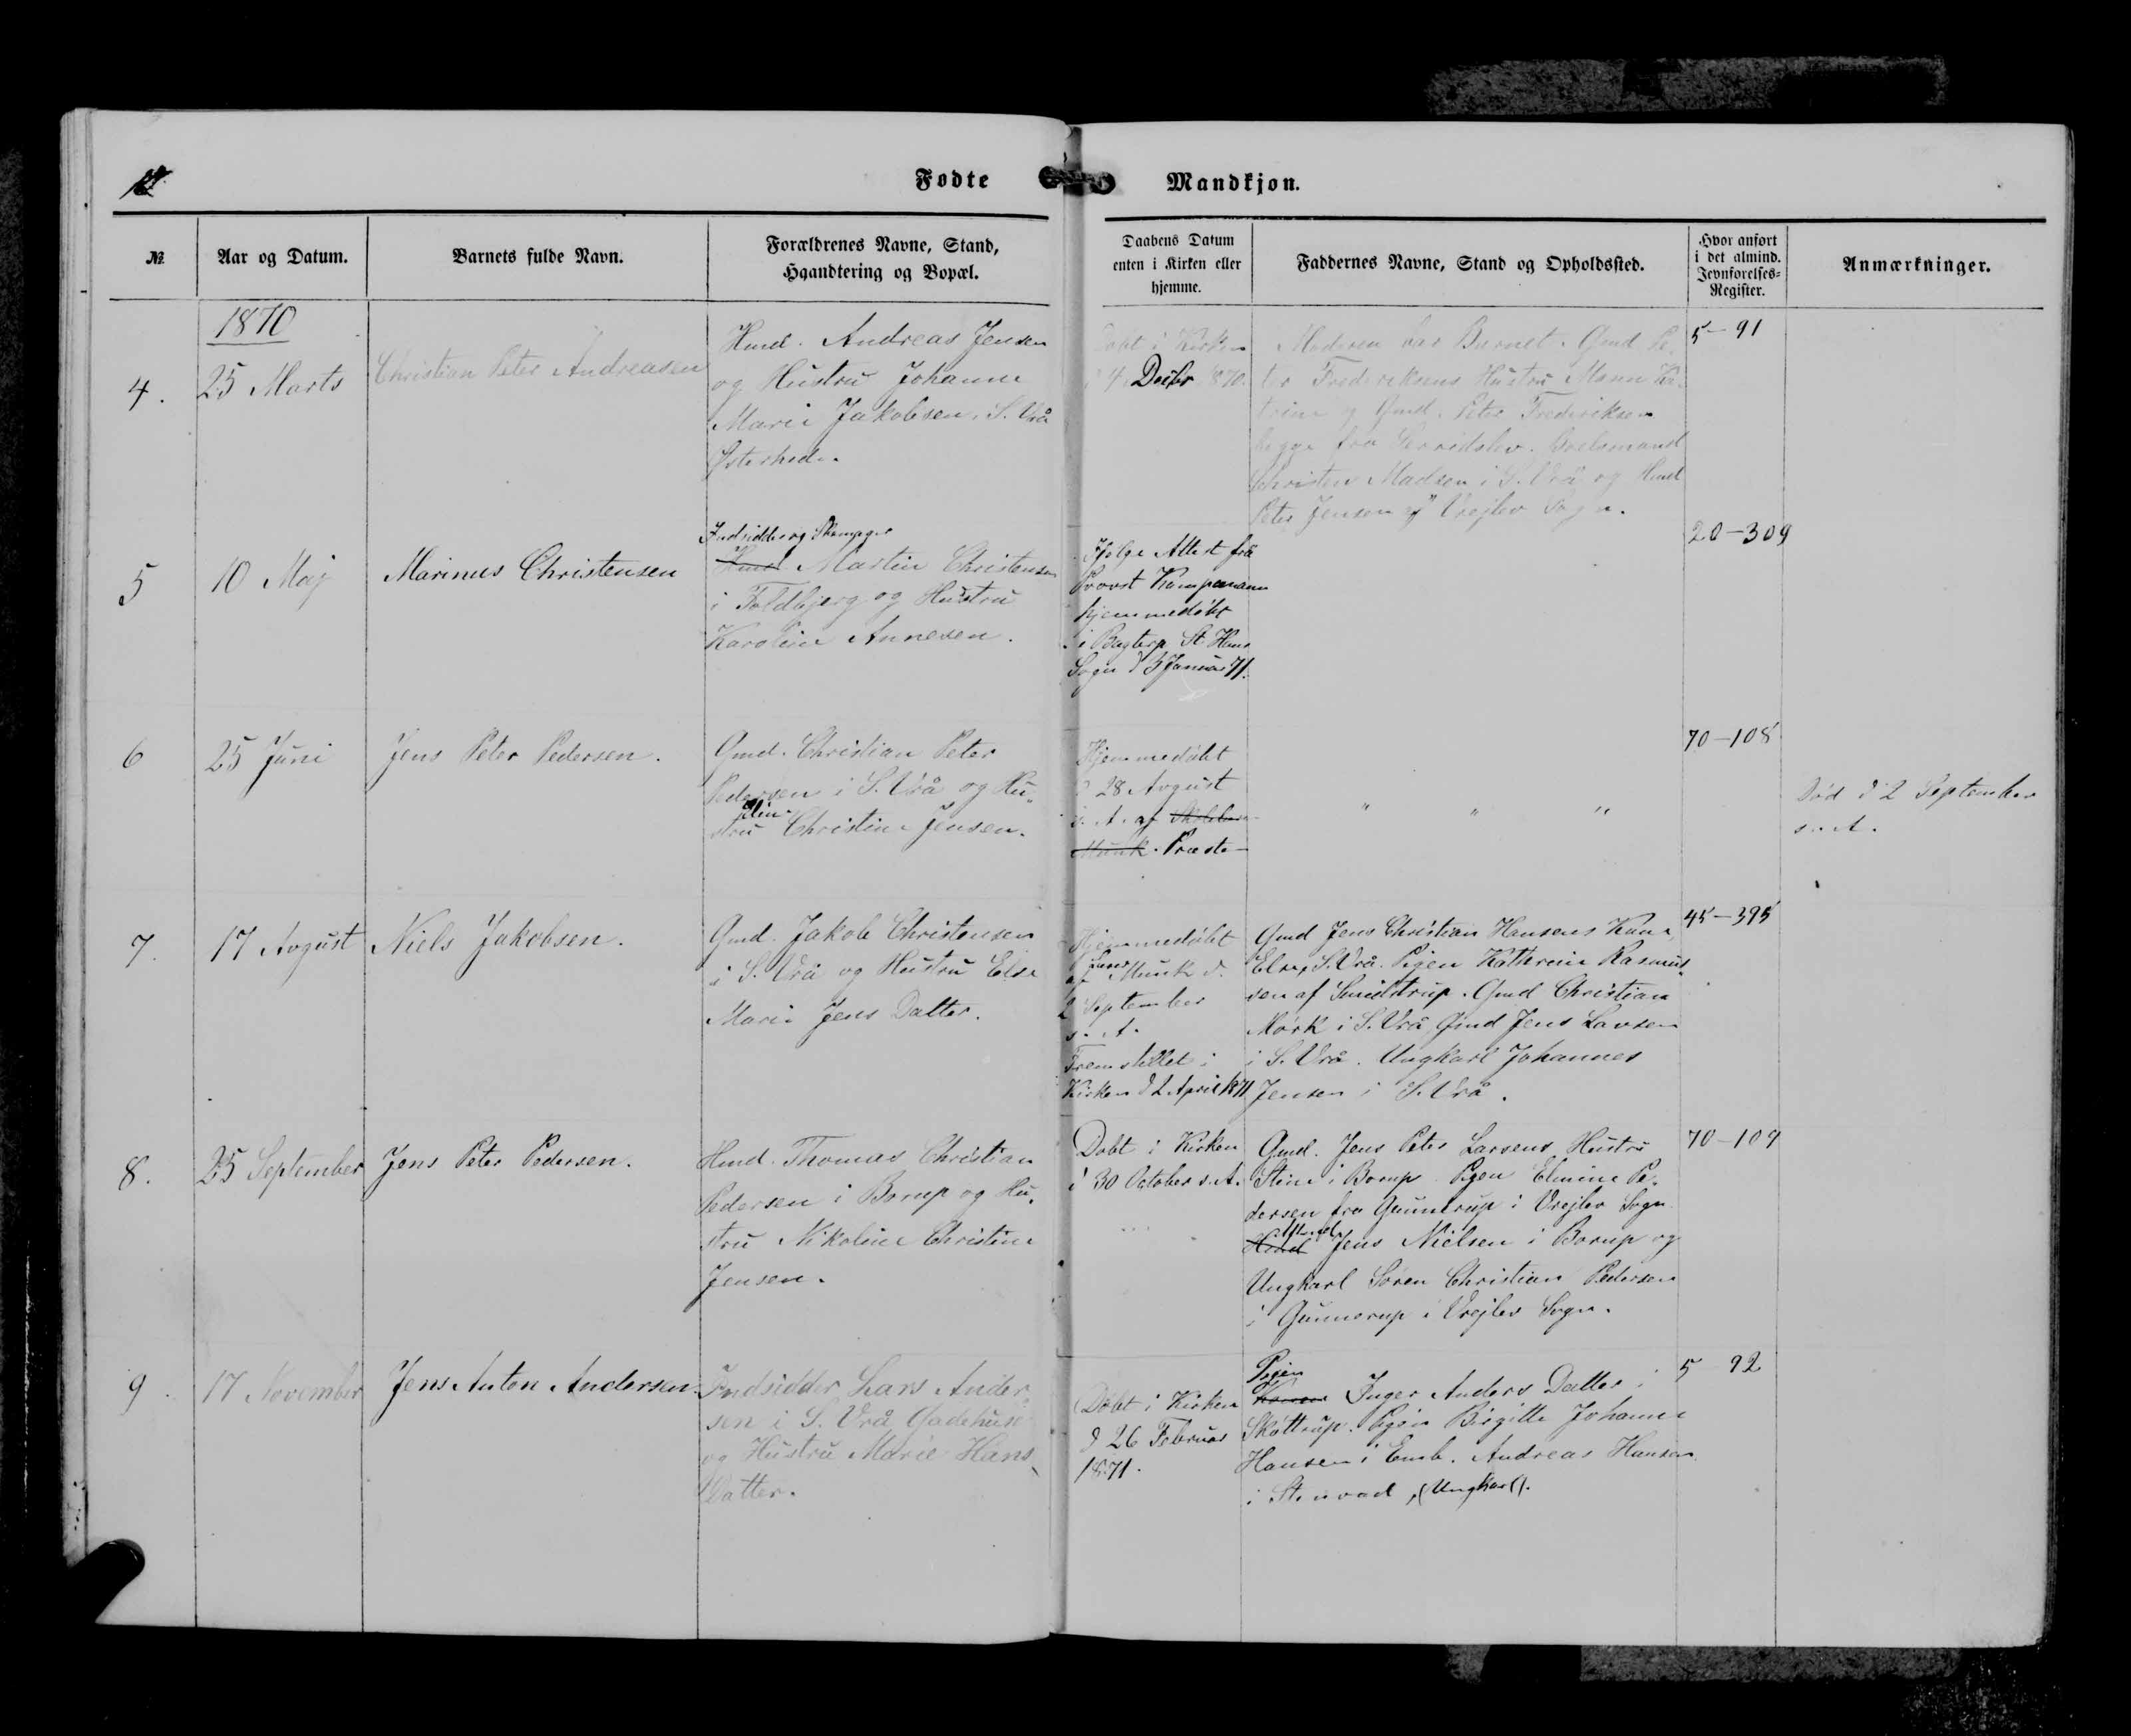 Fødte
Mandkjøn.
№
Aar og Datum.
Barnets fulde Navn.
Forældrenes Navne, Stand,
Haandtering og Bopæl.
Daabens Datum
enten i Kirken eller
hjemme.
Faddernes Navne, Stand og Opholdssted.
Hvor anført
i det almind.
Jevnførelses-
Register.
Anmærkninger.
1870
4.
25 Marts
Christian Peter Andreasen
Hmd. Andreas Jensen
og Hustru Johanne
Marie Jakobsen, S. Vrå
Østerhede.
Døbt i Kirken
4 Decbr 1870.
Moderen bar Barnet. Gmd Pe-
ter Frederiksens Hustru Maren Ka-
trine og Gmd. Peter Frederiksen
begge fra Serridslev. Boelsmand
Christen Madsen i S. Vrå og Hmd
Peter Jensen af Vrejlev Sogn.
5-91
5
10 Maj
Marinus Christensen
Indsidder og
Hmd Martin Christensen
i Foldbjerg og Hustru
Karoline Annesen.
Ifølge Attest fra
Provst Kampmann
hjemmedøbt
i Bagterp St Hans
Sogn d 3 Januar 71.
20-309
6
25 Juni
Jens Peter Pedersen.
Gmd. Christian Peter
Pedersen i S. Vrå og Hu-
stru Christine Jensen.
Hjemmedøbt
d 28 August
s. A. af
Munk. Præste-
" " "
70-108
Død d 2 September
s. A.
7.
17 Avgust
Niels Jakobsen.
Gmd. Jakob Christensen
i S. Vrå og Hustru Else
Marie Jens Datter.
Hjemmedøbt
af Munk d.
2 September
s. A.
Fremstillet i
Kirken d 2 April 1871
Gmd Jens Christian Hansens Kone
Else, S. Vrå. Pigen Kathrine Rasmus-
sen af Smidstrup. Gmd Christian
Mørk i S. Vrå, Gmd Jens Lavsen
i S. Vrå. Ungkarl Johannes
Jensen i S. Vrå.
45-395
8.
25 September
Jens Peter Pedersen.
Hmd. Thomas Christian
Pedersen i Borup og Hu-
stru Nikoline Christine
Jensen.
Døbt i Kirken
d 30 October s. A.
Gmd. Jens Peter Larsens Hustru
Stine i Borup. Pigen Elmine Pe-
dersen fra Gunnerup i Vrejlev Sogn
Hmd Jens Nielsen i Borup og
Ungkarl Søren Christian Pedersen
i Gunnerup i Vrejlev Sogn.
70-109
9.
17 November
Jens Anton Andersen.
Indsidder Lars Ander-
sen i S. Vrå Gadehuse
og Hustru Marie Hans
Datter.
Døbt i Kirken
d 26 Februar
1871.
Pigen
Konen Inger Anders Datter i
Skøttrup. Pigen Birgitte Johanne
Hansen i Emb. Andreas Hansen
i Stenvad, (Ungkarl).
5 92